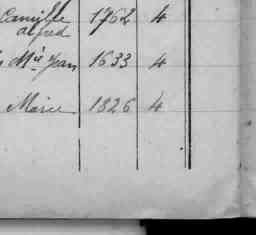 Camille 1762 4
alfred
Mie Jean 1633 4
Marie 1826 4